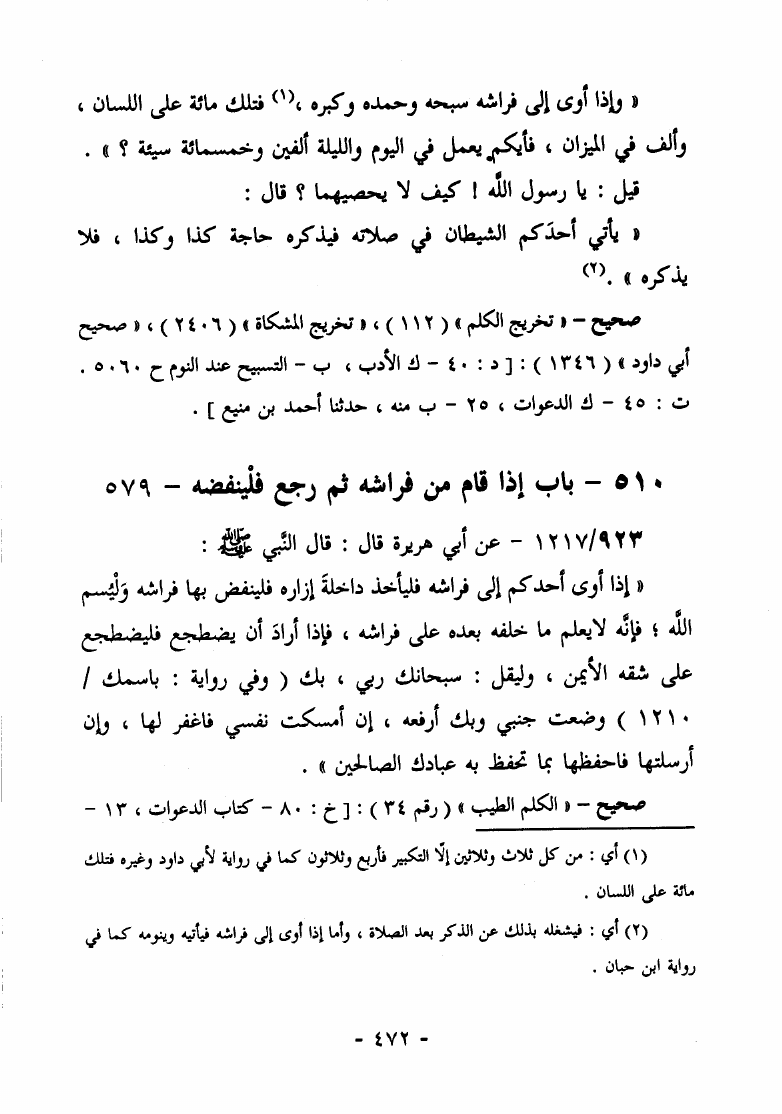 « وإذا أوى إلى فراشه سبحه وحمده وكبره ،(١) فتلك مائة على اللسان ،
وألف في الميزان ، فأيكم يعمل في اليوم والليلة ألفين وخمسمائة سيئة ؟ » .
قيل : يا رسول الله ! كيف لا يحصيهما ؟ قال :
« يأتي أحدَكم الشيطان في صلاته فيذكره حاجة كذا وكذا ، فلا
يذكره » .(٢)
صحيح – « تخريج الكلم » ( ١١٢ ) ، « تخريج المشكاة » ( ٢٤٠٦ ) ، « صحيح
أبي داود » ( ١٣٤٦ ) : [ د : ٤٠ – ك الأدب ، ب – التسبيح عند النوم ح ٥٠٦٠ .
ت : ٤٥ – ك الدعوات ، ٢٥ – ب منه ، حدثنا أحمد بن منيع ] .
٥١٠ – باب إذا قام من فراشه ثم رجع فلْينفضه – ٥٧٩
١٢١٧/٩٢٣ – عن أبي هريرة قال : قال النَّبي ﷺ :
« إذا أوى أحدكم إلى فراشه فليأخذ داخلةَ إزاره فلينفض بها فراشه وَلْيُسم
اللَّه ؛ فإنَّه لايعلم ما خلفه بعده على فراشه ، فإذا أرادَ أن يضطجع فليضطجع
على شقه الأيمن ، وليقل : سبحانك ربي ، بك ( وفي رواية : باسمك /
١٢١٠ ) وضعت جنبي وبك أرفعه ، إن أمسكت نفسي فاغفر لها ، وإن
أرسلتها فاحفظها بما تحفظ به عبادك الصالحين » .
صحيح – « الكلم الطيب » ( رقم ٣٤ ) : [ خ : ٨٠ – كتاب الدعوات ، ١٣ –
(١) أي : من كل ثلاث وثلاثين إلّا التكبير فأربع وثلاثون كما في رواية لأبي داود وغيره فتلك
مائة على اللسان .
(٢) أي : فيشغله بذلك عن الذكر بعد الصلاة ، وأما إذا أوى إلى فراشه فيأتيه وينومه كما في
رواية ابن حبان .
- ٤٧٢ -